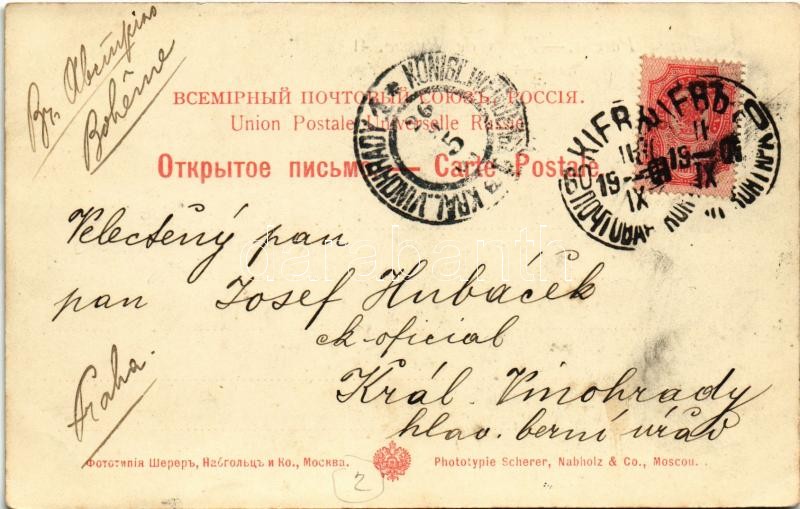 Bohême
ВСЕМІРНЫЙ ПОЧТОВЫЙ СОЮЗЪ. РОССІЯ.
Union Postale Universelle Russie
Открытое письмо — Carte Postale
KRÁL. VINOHRADY
КІЕВЪ
Velectěný pan
pan Josef Hubáček
ck. oficial
Král. Vinohrady
hlav. berní úřad
Praha.
Фототипія Шереръ, Набгольцъ и Ко., Москва.
Phototypie Scherer, Nabholz & Co., Moscou.
2
darabanth